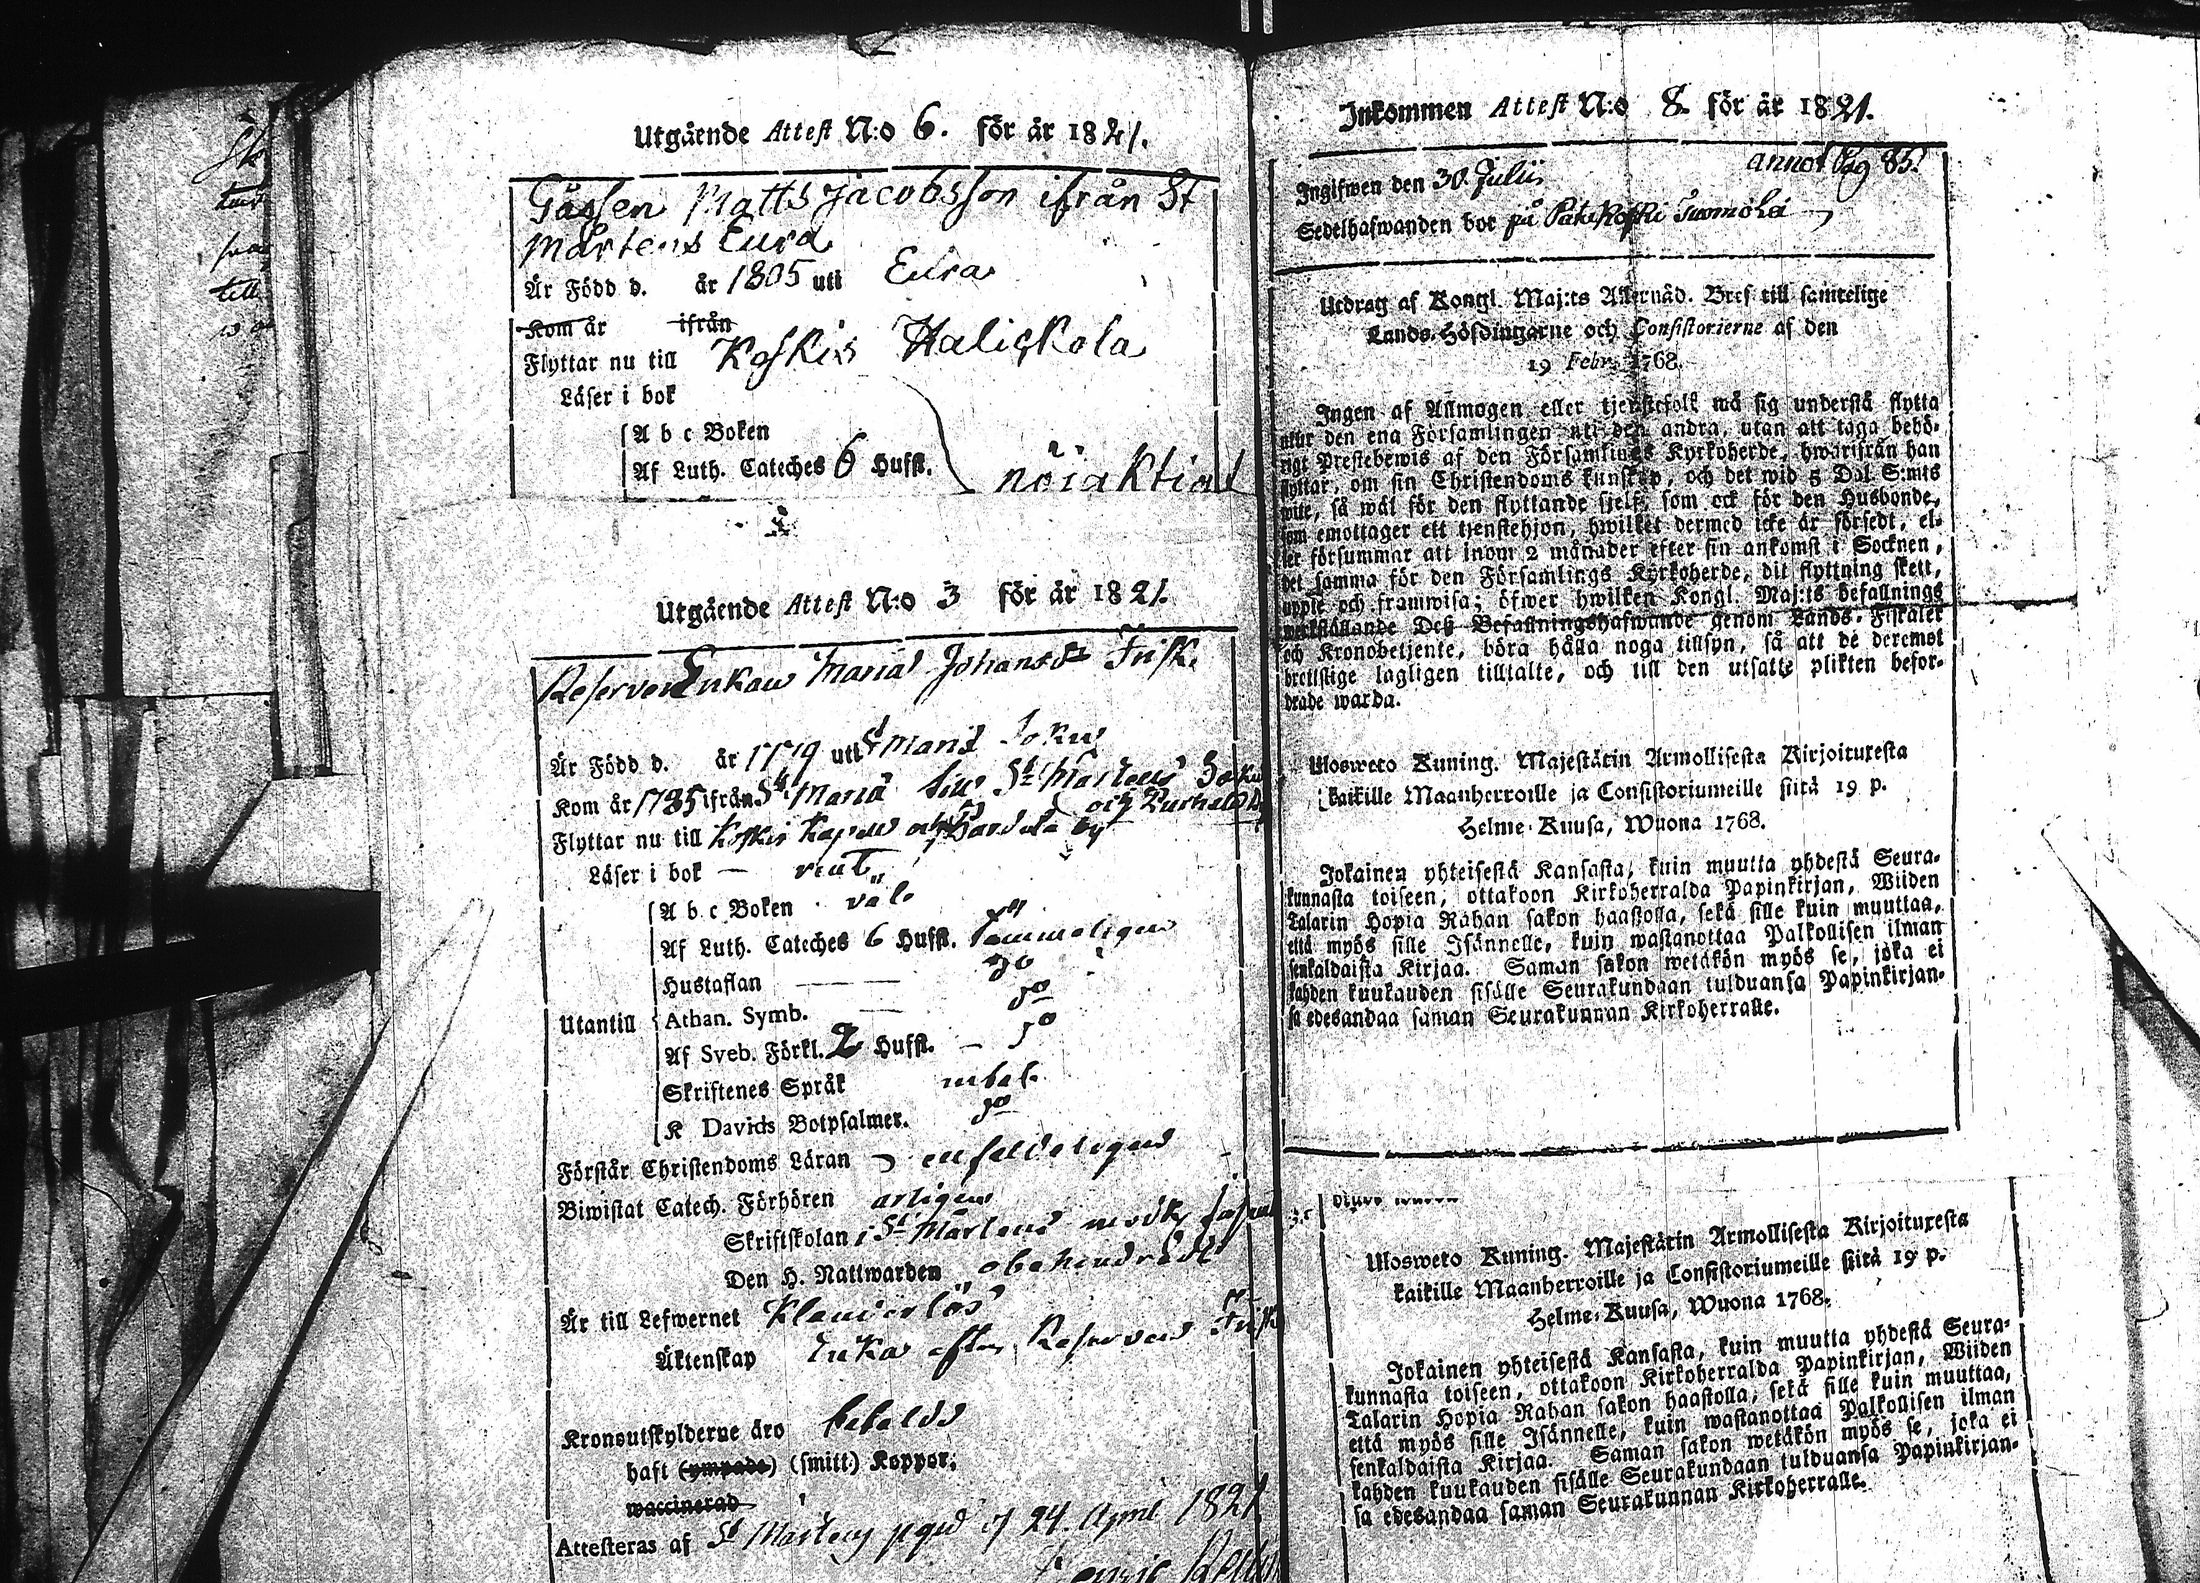 Utgående Attest N:o 6. för år 1821.
Gåssen Matts Jacobsson ifrån St
Mårtens Eura
Är Född d. år 1805 uti Eura
Kom år ifrån
Flyttar nu till Koskis Halickola
Läser i bok
A b c Boken
Af Luth. Cateches 6 Hufst.
nöjaktiat
Utgående Attest N:o 3 för år 1821.
Reserv Enkan Maria Johansdr Frisk.
Är Född d. år 1779 uti St Mariæ Sokn
Kom år 1785 ifrån St Mariæ till St Martens Sokn
Flyttar nu till Koskis Kapell och by
Läser i bok — rent
A b c Boken väl
Af Luth. Cateches 6 Hufst.
Hustaflan
Athan. Symb.
Utantill
Af Sveb. Förkl. 2 Hufst.
Skriftenes Språk
K Davids Botpsalmer.
Förstår Christendoms Läran enfaldeligen
Biwistat Catech. Förhören artigen
Skriftskolan i St Mårtens
Den H. Nattwarden obehindradt
Är till Lefwernet Klanderlös
Äktenskap Enka efter Reserven Frisk
Kronoutskylderne äro betalda
haft (ympade) (smitt) Koppor;
waccinerad
Attesteras af St Martens pgd af 24. April 1821
Inkommen Attest N:o 8. för år 1821.
annot Pag 85.
Ingifwen den 30. Julii
Sedelhafwanden bor på Patakoski Suomela
Utdrag af Kongl. Maj:ts Allernåd. Bref till samtelige
Lands-Höfdingarne och Consistorierne af den
19 Febr. 1768.
Ingen af Allmogen eller tjenstefolk må sig understå flytta
utur den ena Församlingen uti den andra, utan att taga behö-
rigt Prestebewis af den Församlings Kyrkoherde, hwarifrån han
flyttar, om sin Christendoms kunskap, och det wid 5 Dal. S:mts
wite, så wäl för den flyttande sjelf, som ock för den Husbonde,
som emottager ett tjenstehjon, hwilket dermed icke är försedt, el-
ler försummar att inom 2 månader efter sin ankomst i Socknen,
det samma för den Församlings Kyrkoherde, dit flyttning skett,
uppte och framwisa; öfwer hwilken Kongl. Maj:ts befallnings
werkställande Deß Befallningshafwande genom Lands-Fiskaler
och Kronobetjente, böra hålla noga tillsyn, så att de deremot
brettslige lagligen tilltalte, och till den utsatte plikten befor-
drade warda.
Ulosweto Kuning. Majestätin Armollisesta Kirjoituxesta
kaikille Maanherroille ja Consistoriumeille siitä 19 p.
Helme-Kuusa, Wuona 1768.
Jokainen yhteisestä Kansasta, kuin muutta yhdestä Seura-
kunnasta toiseen, ottakoon Kirkoherralda Papinkirjan, Wiiden
Talarin Hopia Rahan sakon haastolla, sekä sille kuin muuttaa,
että myös sille Isännelle, kuin wastanottaa Palkollisen ilman
senkaldaista Kirjaa. Saman sakon wetäkön myös se, joka ei
kahden kuukauden sisälle Seurakundaan tulduansa Papinkirjan-
sa edesandaa saman Seurakunnan Kirkoherralle.
Ulosweto Kuning. Majestätin Armollisesta Kirjoituxesta
kaikille Maanherroille ja Consistoriumeille siitä 19 p.
Helme-Kuusa, Wuona 1768.
Jokainen yhteisestä Kansasta, kuin muutta yhdestä Seura-
kunnasta toiseen, ottakoon Kirkoherralda Papinkirjan, Wiiden
Talarin Hopia Rahan sakon haastolla, sekä sille kuin muuttaa,
että myös sille Isännelle, kuin wastanottaa Palkollisen ilman
senkaldaista Kirjaa. Saman sakon wetäkön myös se, joka ei
kahden kuukauden sisälle Seurakundaan tulduansa Papinkirjan-
sa edesandaa saman Seurakunnan Kirkoherralle.